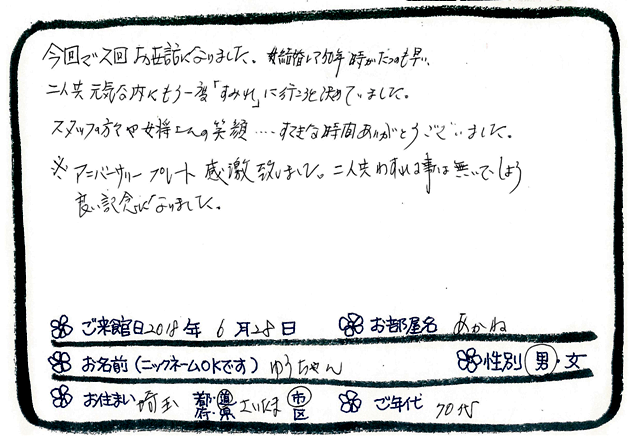 今回で2回お世話になりました。結婚して50年時がたつのも早い、
二人共元気な内にもう一度「すみれ」に行こうと決めていました。
スタッフの方々や女将さんの笑顔‥‥すてきな時間ありがとうございました。
※アニバーサリープレート感激致しました。二人共わすれる事は無いでしょう
良い記念になりました。
ご来館日2018年6月28日 お部屋名 あかね
お名前(ニックネームOKです) ゆうちゃん 性別 男・女
お住まい 埼玉 都道府県 さいたま 市区 ご年代 70代